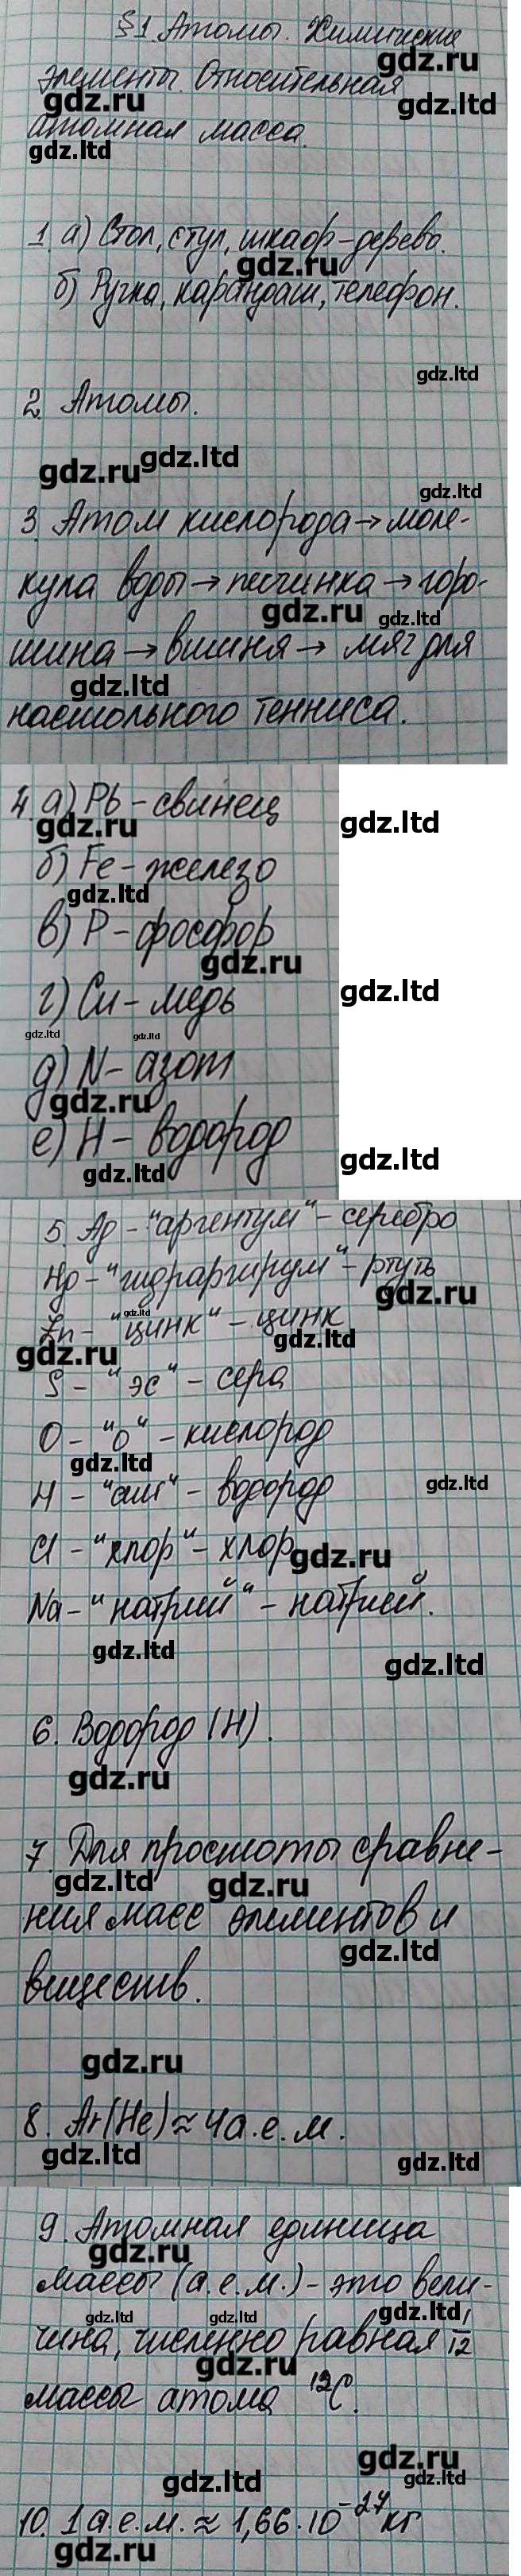 §1. Атомы. Химические
gdz.ru
элементы. Относительная
gdz.ru
gdz.ltd
атомная масса.
gdz.ltd
1. а) Стол, стул, шкаф – дерево.
gdz.ru
б) Ручка, карандаш, телефон.
gdz.ltd
2. Атомы.
gdz.ru gdz.ltd
gdz.ltd
3. Атом кислорода → моле-
кула воды → песчинка → горо-
gdz.ru gdz.ltd
шина → вишня → мяч для
gdz.ltd
настольного тенниса.
4. а) Pb – свинец
gdz.ru gdz.ltd
б) Fe – железо
gdz.ltd
в) P – фосфор
gdz.ru
г) Cu – медь
gdz.ltd
gdz.ltd gdz.ltd
д) N – азот
gdz.ru
е) H – водород
gdz.ltd gdz.ltd
5. Ag – "аргентум" – серебро
Hg – "гидраргирум" – ртуть
gdz.ru
gdz.ltd
Zn – "цинк" – цинк
gdz.ru gdz.ltd
S – "эс" – сера
O – "о" – кислород
gdz.ltd
H – "аш" – водород
gdz.ltd
Cl – "хлор" – хлор
gdz.ru
Na – "натрий" – натрий.
gdz.ltd
gdz.ltd
6. Водород (H).
gdz.ru
7. Для простоты сравне-
gdz.ltd gdz.ru
ния масс элементов и
gdz.ltd
веществ.
gdz.ru
8. Ar(He) ≈ 4 а.е.м.
gdz.ltd gdz.ltd
9. Атомная единица
gdz.ru
массы (а.е.м.) – это вели-
gdz.ltd gdz.ltd gdz.ltd
чина, численно равная 1/12
gdz.ru
массы атома ¹²C.
gdz.ru
gdz.ltd gdz.ltd
10. 1 а.е.м. ≈ 1,66·10⁻²⁷ кг
gdz.ru